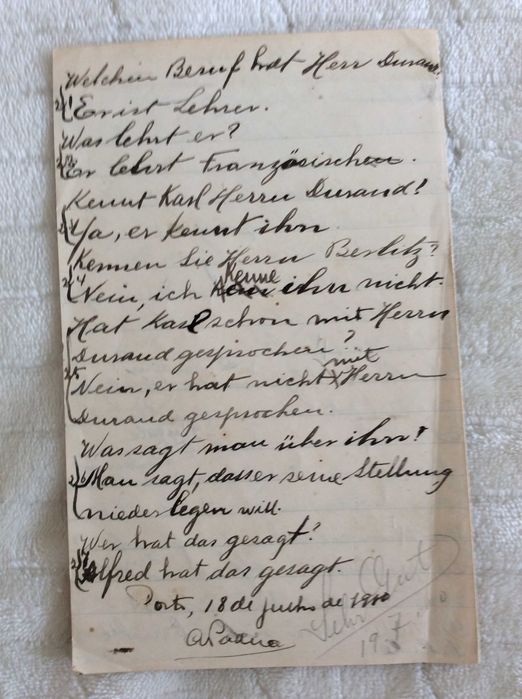 Welchen Beruf hat Herr Durand?
Er ist Lehrer.
Was lehrt er?
Er lehrt Französischen.
Kennt Karl Herrn Durand?
Ja, er kennt ihn.
Kennen Sie Herrn Berlitz?
Nein, ich kenne ihn nicht.
Hat Karl schon mit Herrn
Durand gesprochen?
Nein, er hat nicht mit Herrn
Durand gesprochen.
Was sagt man über ihn?
Man sagt, dass er seine Stellung
niederlegen will.
Wer hat das gesagt?
Alfred hat das gesagt.
Porto, 18 de Julho de 1910
Sehr Gut